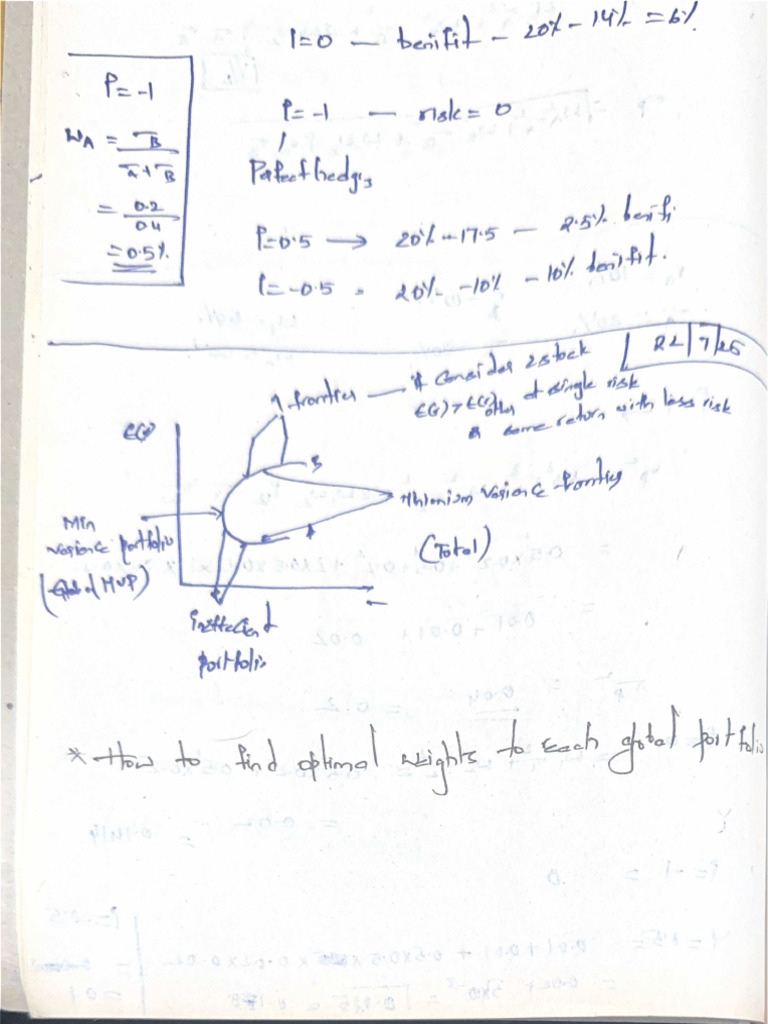 ρ=0 — benifit – 20% – 14% = 6%
ρ = -1
ρ = -1 — risk = 0
W_A = σB / σa + σB
Perfect hedgis
= 0.2 / 0.4
= 0.5%
ρ=0.5 → 20% – 17.5 – 2.5% benifi
ρ = -0.5 = 20% – 10% – 10% benifit.
22/7/25
η frontier — if consider 2 stock
E(r) > E(r) other at single risk
& same return with less risk
E(r)
B
A
variance frontier
(Total)
Min
variance portfolio
(Global MVP)
portfolio
* How to find optimal weights to each global portfolio